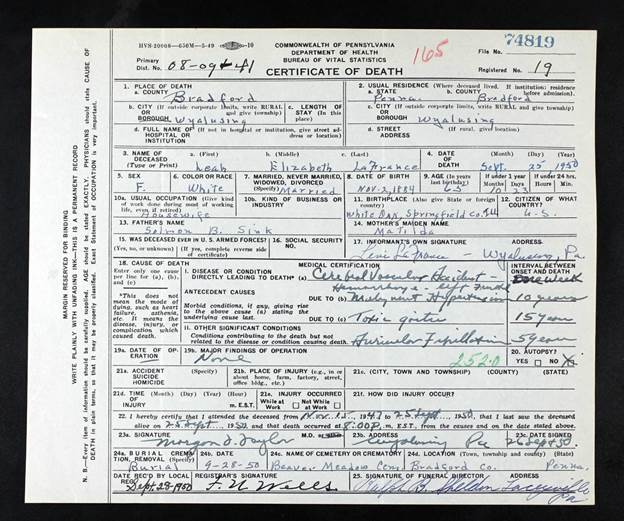 HVS-20008—650M—5-49 10
COMMONWEALTH OF PENNSYLVANIA
DEPARTMENT OF HEALTH
BUREAU OF VITAL STATISTICS
CERTIFICATE OF DEATH
165
File No. 74819
Primary
Dist. No. 08-09-41
Registered No. 19
1. PLACE OF DEATH
a. COUNTY Bradford
2. USUAL RESIDENCE (Where deceased lived. If institution: residence before admission).
a. STATE Penna. b. COUNTY Bradford
b. CITY (If outside corporate limits, write RURAL and give township)
OR
BOROUGH Wyalusing
c. LENGTH OF STAY (In this place)
c. CITY (If outside corporate limits, write RURAL and give township)
OR
BOROUGH Wyalusing
d. FULL NAME OF (If not in hospital or institution, give street address or location)
HOSPITAL OR
INSTITUTION
d. STREET ADDRESS (If rural, give location)
3. NAME OF DECEASED (Type or Print)
a. (First) Leah
b. (Middle) Elizabeth
c. (Last) LaFrance
4. DATE OF DEATH (Month) (Day) (Year)
Sept. 25 1950
5. SEX F.
6. COLOR OR RACE White
7. MARRIED, NEVER MARRIED, WIDOWED, DIVORCED (Specify) Married
8. DATE OF BIRTH Nov. 2, 1884
9. AGE (In years last birthday) 65
If under 1 year Months 10 Days 23
If under 24 hrs. Hours Min.
10a. USUAL OCCUPATION (Give kind of work done during most of working life, even if retired) Housewife
10b. KIND OF BUSINESS OR INDUSTRY
11. BIRTHPLACE (Also give State or foreign country) Springfield
12. CITIZEN OF WHAT COUNTRY? U.S.
13. FATHER'S NAME
Solmon B. Sink
14. MOTHER'S MAIDEN NAME
Matilda
15. WAS DECEASED EVER IN U.S. ARMED FORCES?
(Yes, no, or unknown) (If yes, complete reverse side of certificate)
16. SOCIAL SECURITY NO.
17. INFORMANT'S OWN SIGNATURE
Levi LaFrance - Wyalusing, Pa
18. CAUSE OF DEATH
Enter only one cause per line for (a), (b), and (c)
*This does not mean the mode of dying, such as heart failure, asthenia, etc. It means the disease, injury, or complication which caused death.
MEDICAL CERTIFICATION
INTERVAL BETWEEN ONSET AND DEATH
I. DISEASE OR CONDITION DIRECTLY LEADING TO DEATH* (a) Cerebral Vascular Accident -
Hemorrhage - left
One week
ANTECEDENT CAUSES
Morbid conditions, if any, giving rise to the above cause (a) stating the underlying cause last.
DUE TO (b) Malignant Hypertension 10 years
DUE TO (c) Toxic goitre 15 years
II. OTHER SIGNIFICANT CONDITIONS
Conditions contributing to the death but not related to the disease or condition causing death.
Auricular Fibrillation 5 years
19a. DATE OF OPERATION
19b. MAJOR FINDINGS OF OPERATION
None
252.0
20. AUTOPSY?
YES NO X
21a. ACCIDENT SUICIDE HOMICIDE (Specify)
21b. PLACE OF INJURY (e.g., in or about home, farm, factory, street, office bldg., etc.)
21c. (CITY, TOWN AND TOWNSHIP) (COUNTY) (STATE)
21d. TIME OF INJURY (Month) (Day) (Year) (Hour) m. EST.
21e. INJURY OCCURRED
While at Work Not While at Work
21f. HOW DID INJURY OCCUR?
22. I hereby certify that I attended the deceased from Nov. 15, 1947, to 25 Sept, 1950, that I last saw the deceased
alive on 25 Sept, 1950, and that death occurred at 8:00 P. m. EST., from the causes and on the date stated above.
23a. SIGNATURE Morgan D. Taylor M.D.
23b. ADDRESS Wyalusing Pa
23c. DATE SIGNED 26 Sept 50
24a. BURIAL, CREMATION, REMOVAL (Specify) Burial
24b. DATE 9-28-50
24c. NAME OF CEMETERY OR CREMATORY Beaver Meadow Cem.
24d. LOCATION (Town, township and county) (State) Bradford Co. Penna.
DATE REC'D BY LOCAL REG. Sept. 28, 1950
REGISTRAR'S SIGNATURE F. U. Wells
25. SIGNATURE OF FUNERAL DIRECTOR ADDRESS
Ralph B. Sheldon Laceyville Pa
MARGIN RESERVED FOR BINDING
WRITE PLAINLY WITH UNFADING INK—THIS IS A PERMANENT RECORD
N. B.—Every item of information should be carefully supplied. AGE should be stated EXACTLY. PHYSICIANS should state CAUSE OF
DEATH in plain terms, so that it may be properly classified. Exact Statement of OCCUPATION is very important.